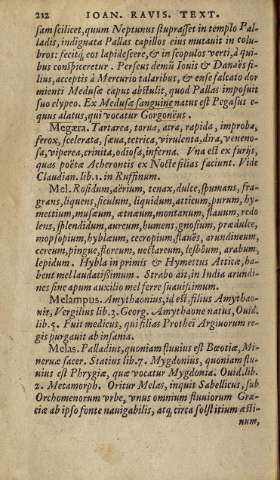 212 IOAN. RAVIS. TEXT.
sam scilicet, quum Neptunus stuprasset in templo Pal-
ladis, indignata Pallas capillos eius mutauit in colu-
bros: fecitq́; eos lapidescere, & in scopulos verti, à qui-
bus conspiceretur. Perseus demū Iouis & Danaës fi-
lius, acceptis à Mercurio talaribus, & ense falcato dor
mienti Medusæ caput abstulit, quod Pallas imposuit
suo clypeo. Ex Medusæ sanguine natus est Pegasus e-
quus alatus, qui vocatur Gorgoneus.
Megæra. Tartarea, torua, atra, rapida, improba,
ferox, scelerata, sæua, tetrica, virulenta, dira, veneno-
sa, viperea, crinita, odiosa, inferna. Vna est ex furijs,
quas poëtæ Acherontis ex Nocte filias faciunt. Vide
Claudian. lib. 1. in Ruffinum.
Mel. Rosidum, aërium, tenax, dulce, spumans, fra-
grans, liquens, siculum, liquidum, atticum, purum, hy-
mettium, musæum, ætnæum, montanum, flauum, redo
lens, splendidum, aureum, humens, gnosium, prædulce,
mopsopium, hyblæum, cecropium, flauēs, arundineum,
cereum, pingue, florum, nectareum, lesboum, arabum,
lepidum. Hybla in primis & Hymettus Atticæ, ha-
bent mel laudatißimum. Strabo ait, in India arundi-
nes sine apum auxilio mel ferre suauißimum.
Melampus. Amythaonius, id est, filius Amythao-
nis, Vergilius lib. 3. Georg. Amythaone natus, Ouid.
lib. 5. Fuit medicus, qui filias Prothei Argiuorum re-
gis purgauit ab insania.
Melas. Palladius, quoniam fluuius est Bœotiæ, Mi-
neruæ sacer. Statius lib. 7. Mygdonius, quoniam flu-
uius est Phrygiæ, quæ vocatur Mygdonia. Ouid. lib.
2. Metamorph. Oritur Melas, inquit Sabellicus, sub
Orchomenorum vrbe, vnus omnium fluuiorum Græ-
ciæ ab ipso fonte nauigabilis, atq́; circa solstitium æsti-
uum,